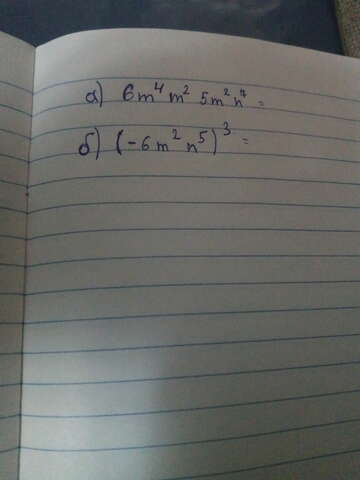 а) 6m⁴m² 5m²n⁷ =
б) (-6m²n⁵)³ =